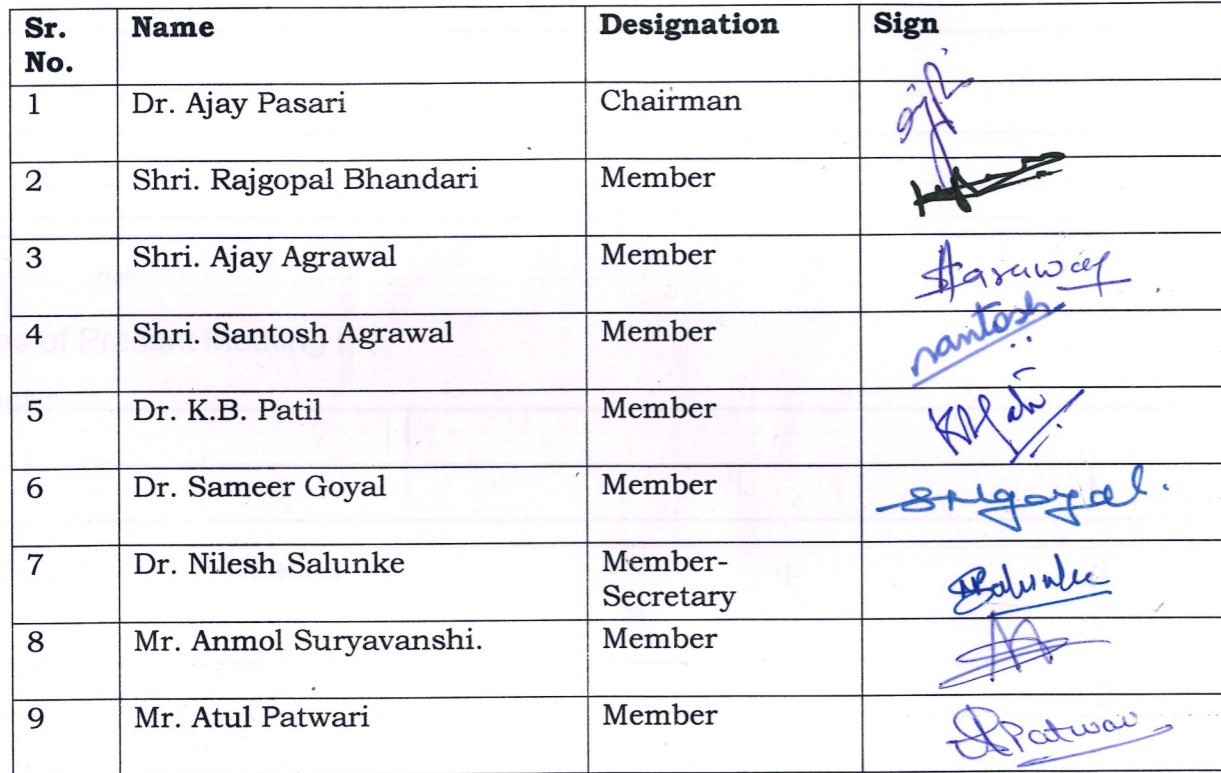 Sr. No. Name Designation Sign
1 Dr. Ajay Pasari Chairman
2 Shri. Rajgopal Bhandari Member
3 Shri. Ajay Agrawal Member
4 Shri. Santosh Agrawal Member santosh
5 Dr. K.B. Patil Member
6 Dr. Sameer Goyal Member sngoyal.
7 Dr. Nilesh Salunke Member-
Secretary
8 Mr. Anmol Suryavanshi. Member
9 Mr. Atul Patwari Member